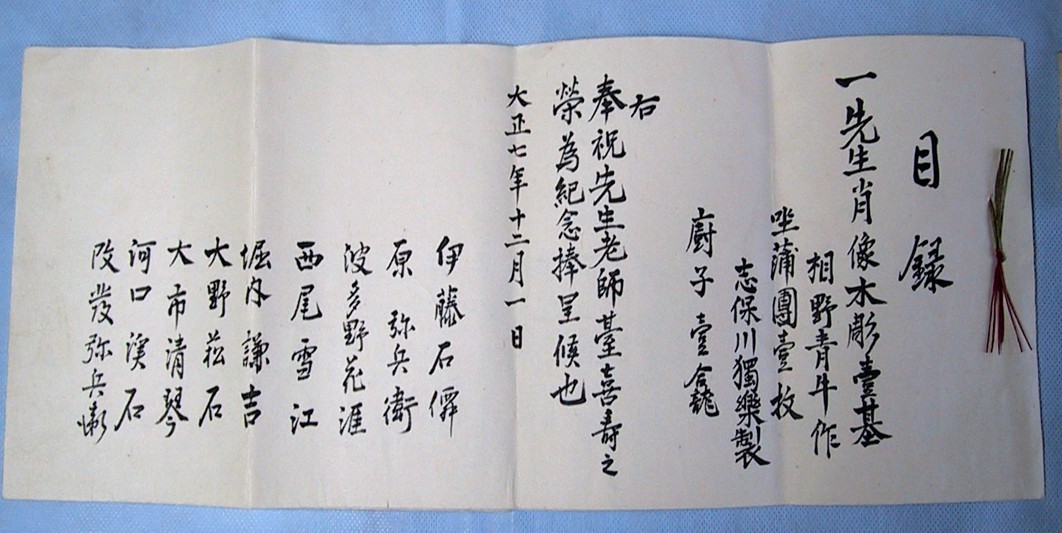 目録
一先生肖像木彫壹基
相野青牛作
坐蒲團壹枚
志保川獨樂製
廚子壹合龕
右
奉祝先生老師臺喜壽之
榮為紀念捧呈候也
大正七年十二月一日
伊藤石
原弥兵衛
波多野花涯
西尾雪江
堀内謙吉
大野菘石
大市清琴
河口渓石
弥兵衛